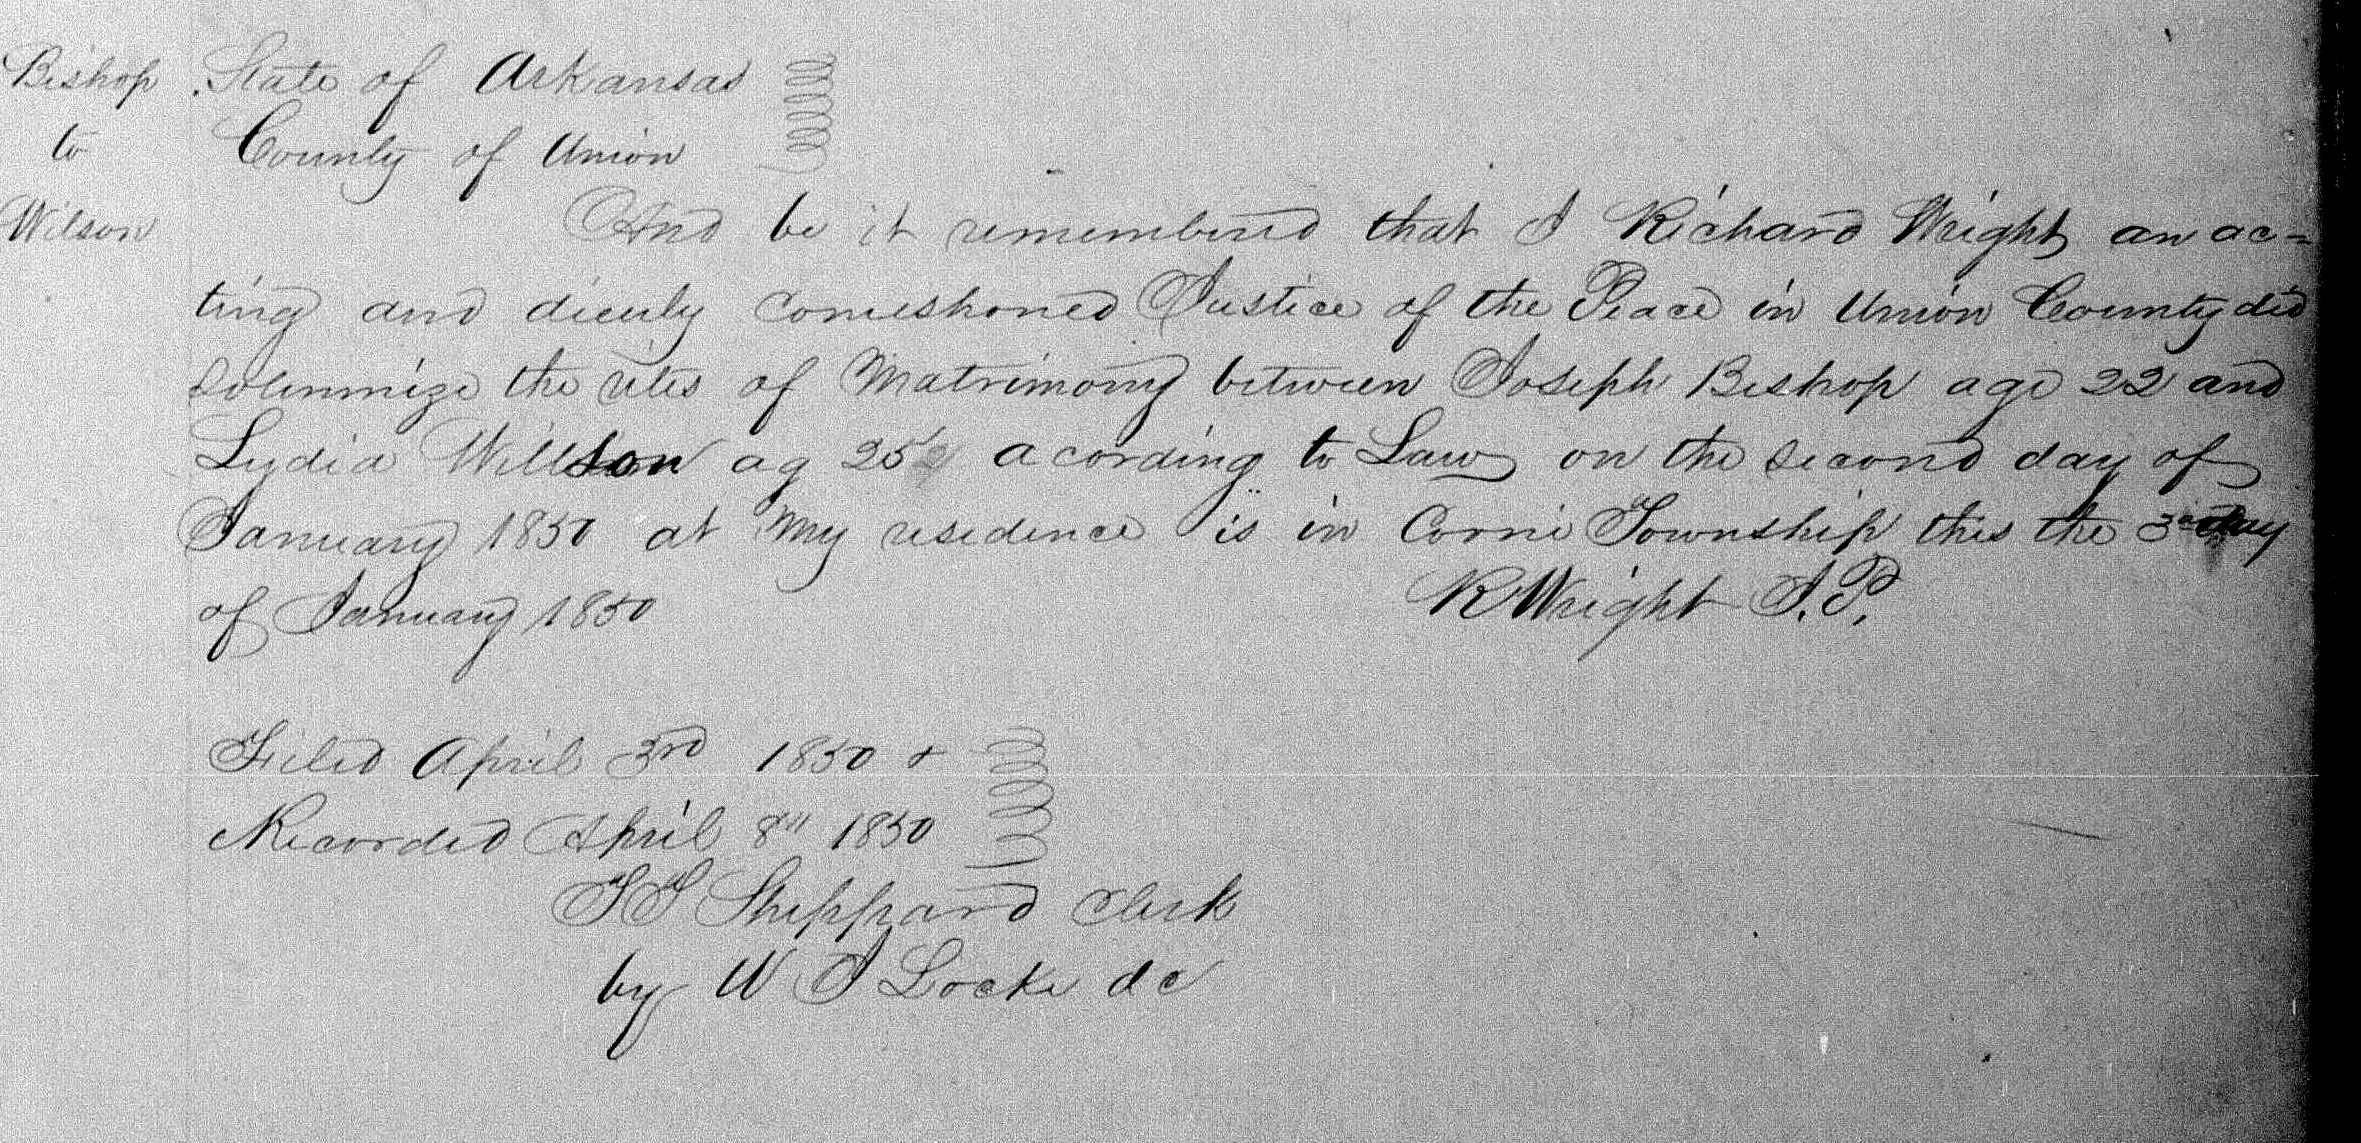 Bishop
to
Wilson
State of Arkansas
County of Union
And be it remembered that I Richard Wright an ac=
ting and dieuly comeshoned Justice of the Peace in Union County did
Solemnize the rites of Matrimony between Joseph Bishop age 22 and
Lydia Willson ag 25 acording to Law on the second day of
January 1850 at My residence is in Corni Township this the 3rd day
of January 1850
R Wright J.P.
Filed April 3rd 1850 &
Recorded April 8" 1850
T T Sheppard Clerk
by W J Locke dc